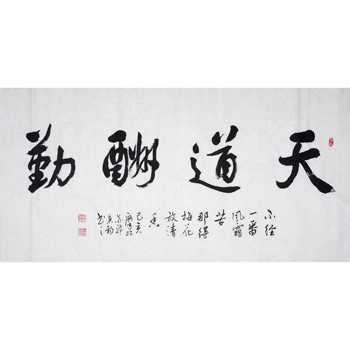 天道酬勤
不经
一番
风霜
苦
那得
梅花
放清
香
己亥